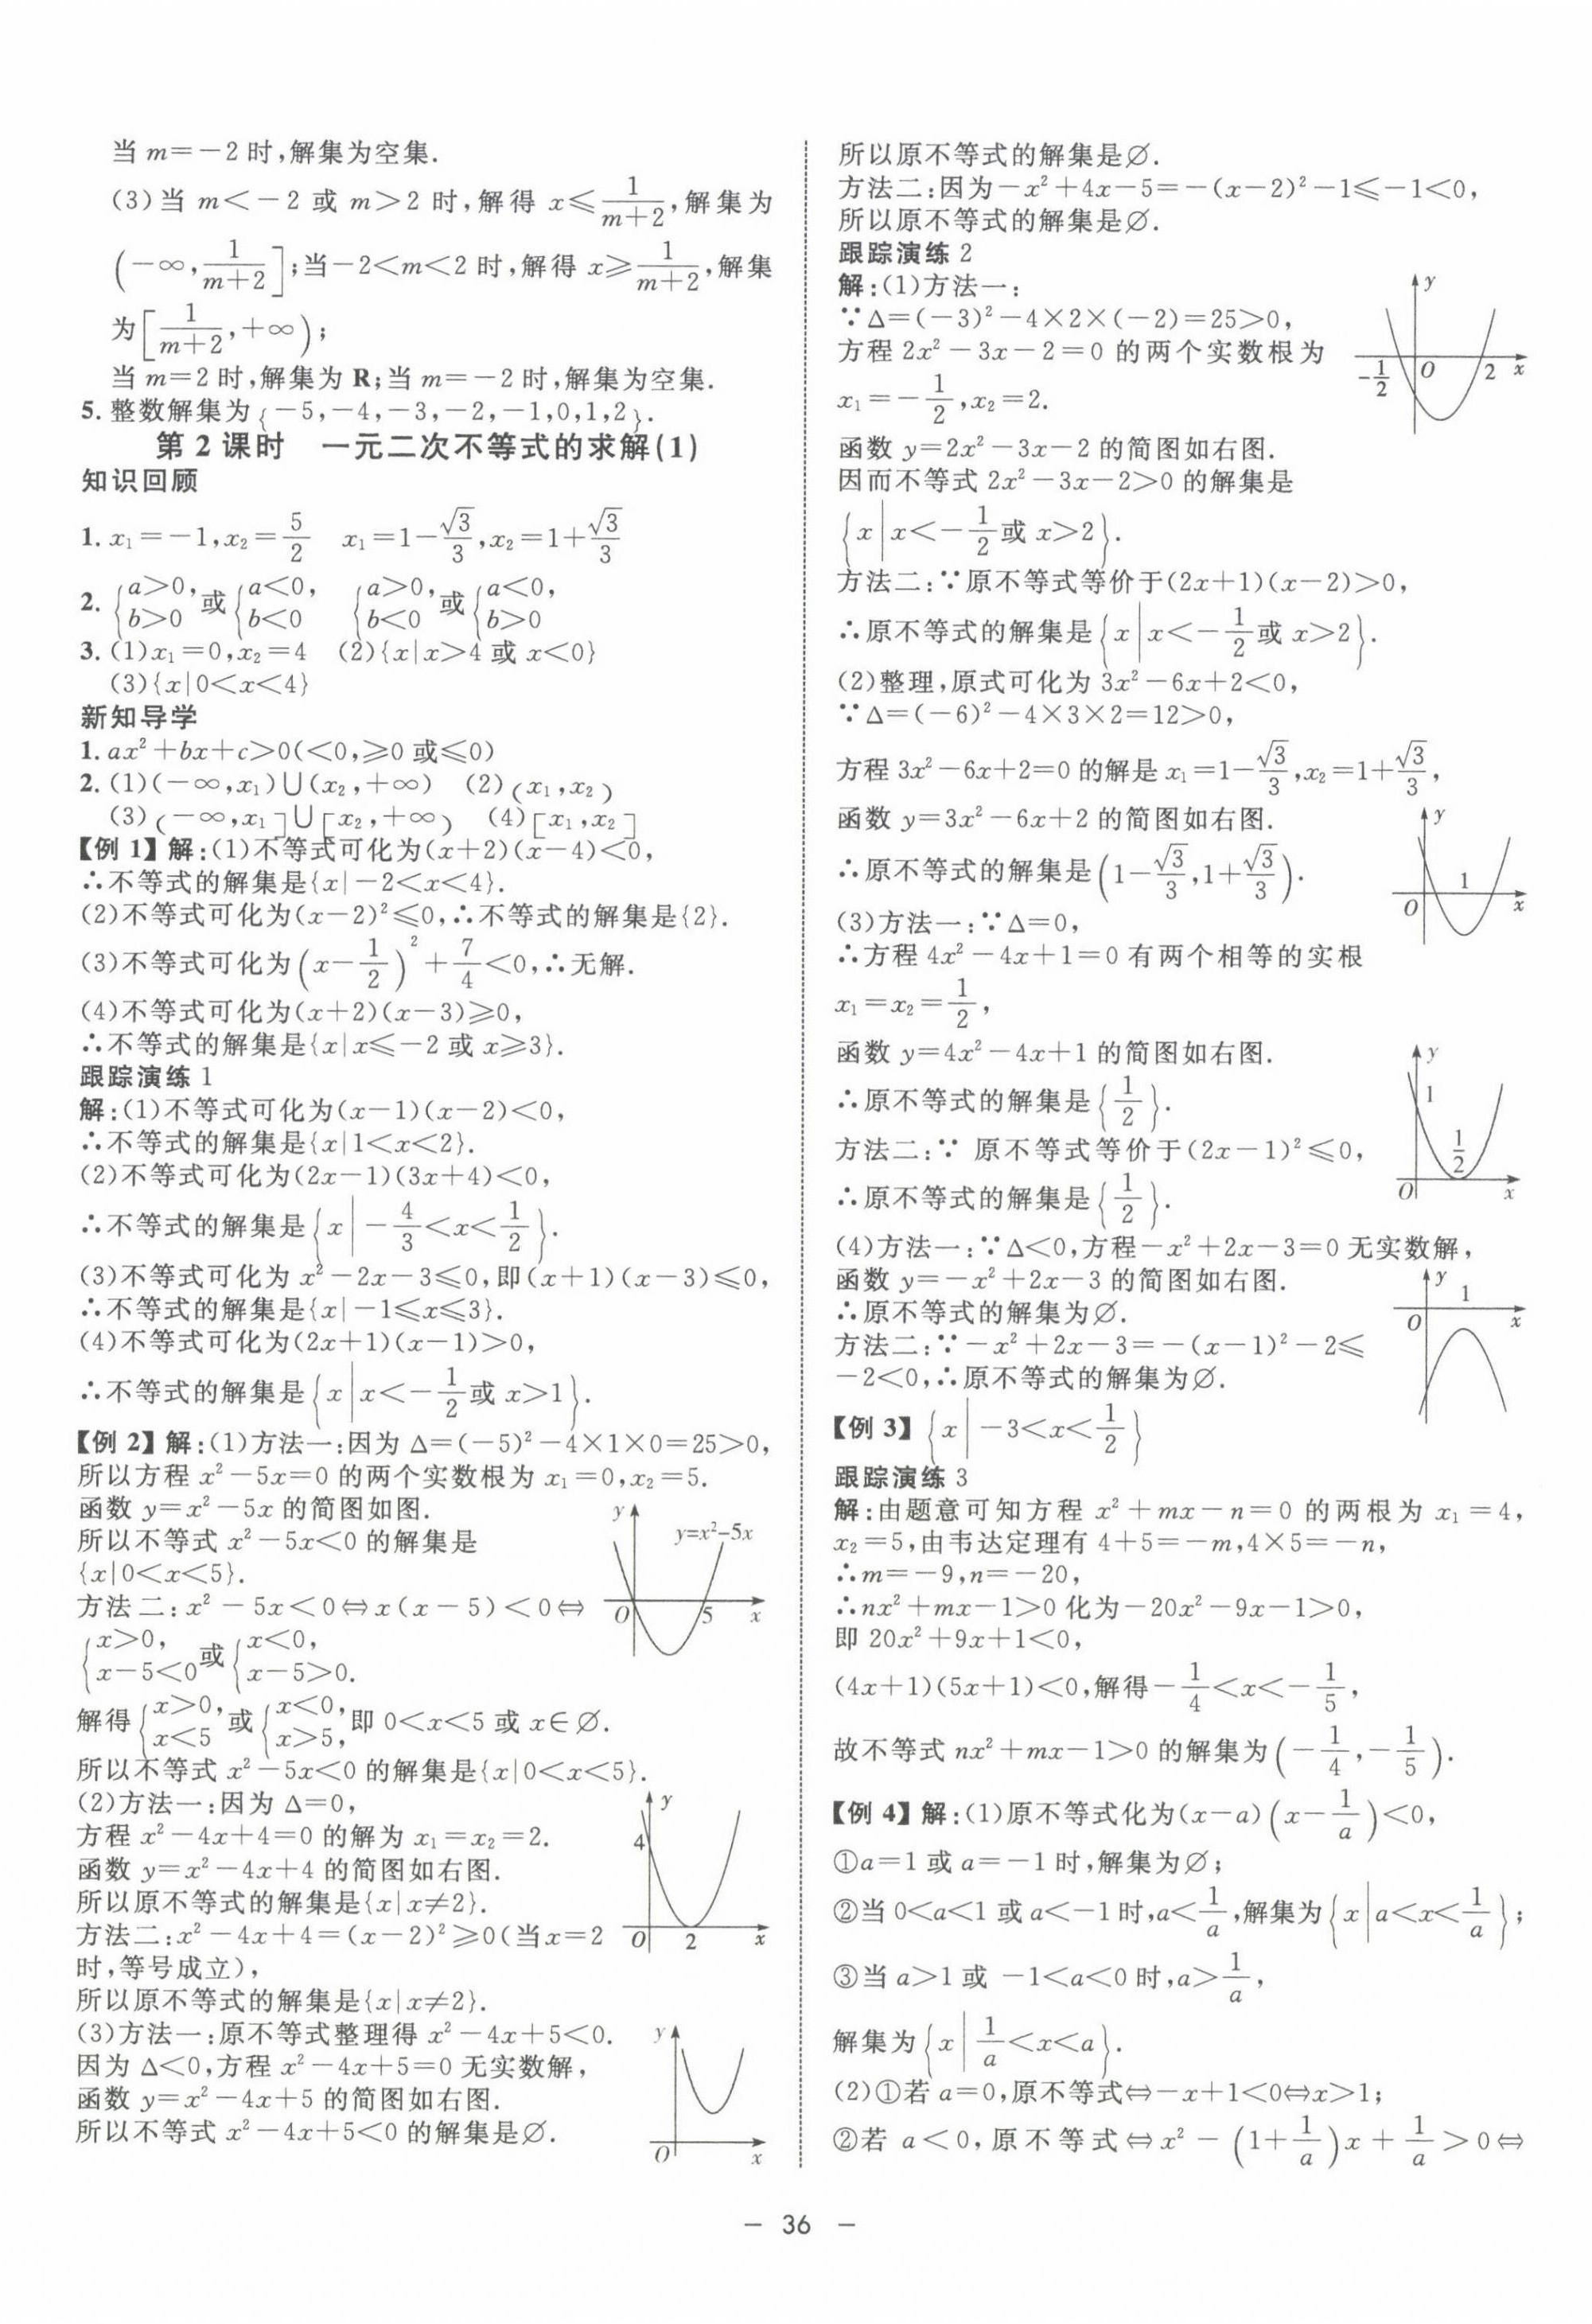 当 m=-2 时,解集为空集.
(3)当 m<-2 或 m>2 时,解得 x≤1/(m+2),解集为
(-∞,1/(m+2)];当-2<m<2 时,解得 x≥1/(m+2),解集
为[1/(m+2),+∞);
当 m=2 时,解集为 R;当 m=-2 时,解集为空集.
5. 整数解集为{-5,-4,-3,-2,-1,0,1,2}.
第 2 课时 一元二次不等式的求解(1)
知识回顾
1. x₁=-1,x₂=5/2 x₁=1-√3/3,x₂=1+√3/3
2. {a>0,b>0 或{a<0,b<0 {a>0,b<0 或{a<0,b>0
3. (1)x₁=0,x₂=4 (2){x|x>4 或 x<0}
(3){x|0<x<4}
新知导学
1. ax²+bx+c>0(<0,≥0 或≤0)
2. (1)(-∞,x₁)∪(x₂,+∞) (2)(x₁,x₂)
(3)(-∞,x₁]∪[x₂,+∞) (4)[x₁,x₂]
【例 1】解:(1)不等式可化为(x+2)(x-4)<0,
∴不等式的解集是{x|-2<x<4}.
(2)不等式可化为(x-2)²≤0,∴不等式的解集是{2}.
(3)不等式可化为(x-1/2)²+7/4<0,∴无解.
(4)不等式可化为(x+2)(x-3)≥0,
∴不等式的解集是{x|x≤-2 或 x≥3}.
跟踪演练 1
解:(1)不等式可化为(x-1)(x-2)<0,
∴不等式的解集是{x|1<x<2}.
(2)不等式可化为(2x-1)(3x+4)<0,
∴不等式的解集是{x|-4/3<x<1/2}.
(3)不等式可化为 x²-2x-3≤0,即(x+1)(x-3)≤0,
∴不等式的解集是{x|-1≤x≤3}.
(4)不等式可化为(2x+1)(x-1)>0,
∴不等式的解集是{x|x<-1/2或 x>1}.
【例 2】解:(1)方法一:因为 Δ=(-5)²-4×1×0=25>0,
所以方程 x²-5x=0 的两个实数根为 x₁=0,x₂=5.
函数 y=x²-5x 的简图如图.
所以不等式 x²-5x<0 的解集是
{x|0<x<5}.
y
y=x²-5x
O
5
x
方法二:x²-5x<0⇔x(x-5)<0⇔
{x>0,x-5<0 或{x<0,x-5>0.
解得{x>0,x<5 或{x<0,x>5,即 0<x<5 或 x∈∅.
所以不等式 x²-5x<0 的解集是{x|0<x<5}.
(2)方法一:因为 Δ=0,
方程 x²-4x+4=0 的解为 x₁=x₂=2.
函数 y=x²-4x+4 的简图如右图.
所以原不等式的解集是{x|x≠2}.
方法二:x²-4x+4=(x-2)²≥0(当x=2
时,等号成立),
y
4
O
2
x
所以原不等式的解集是{x|x≠2}.
(3)方法一:原不等式整理得 x²-4x+5<0.
因为 Δ<0,方程 x²-4x+5=0 无实数解,
函数 y=x²-4x+5 的简图如右图.
所以不等式 x²-4x+5<0 的解集是∅.
y
O
x
所以原不等式的解集是∅.
方法二:因为-x²+4x-5=-(x-2)²-1≤-1<0,
所以原不等式的解集是∅.
跟踪演练 2
解:(1)方法一:
∵Δ=(-3)²-4×2×(-2)=25>0,
方程 2x²-3x-2=0 的两个实数根为
x₁=-1/2,x₂=2.
y
-1/2
O
2
x
函数 y=2x²-3x-2 的简图如右图.
因而不等式 2x²-3x-2>0 的解集是
{x|x<-1/2或 x>2}.
方法二:∵原不等式等价于(2x+1)(x-2)>0,
∴原不等式的解集是{x|x<-1/2或 x>2}.
(2)整理,原式可化为 3x²-6x+2<0,
∵Δ=(-6)²-4×3×2=12>0,
方程 3x²-6x+2=0 的解是 x₁=1-√3/3,x₂=1+√3/3,
函数 y=3x²-6x+2 的简图如右图.
∴原不等式的解集是(1-√3/3,1+√3/3).
y
1
O
x
(3)方法一:∵Δ=0,
∴方程 4x²-4x+1=0 有两个相等的实根
x₁=x₂=1/2,
函数 y=4x²-4x+1 的简图如右图.
∴原不等式的解集是{1/2}.
方法二:∵ 原不等式等价于(2x-1)²≤0,
∴原不等式的解集是{1/2}.
y
1
1/2
O
x
(4)方法一:∵Δ<0,方程-x²+2x-3=0 无实数解,
函数 y=-x²+2x-3 的简图如右图.
∴原不等式的解集为∅.
方法二:∵-x²+2x-3=-(x-1)²-2≤
-2<0,∴原不等式的解集为∅.
y
1
O
x
【例 3】{x|-3<x<1/2}
跟踪演练 3
解:由题意可知方程 x²+mx-n=0 的两根为 x₁=4,
x₂=5,由韦达定理有 4+5=-m,4×5=-n,
∴m=-9,n=-20,
∴nx²+mx-1>0 化为-20x²-9x-1>0,
即 20x²+9x+1<0,
(4x+1)(5x+1)<0,解得-1/4<x<-1/5,
故不等式 nx²+mx-1>0 的解集为(-1/4,-1/5).
【例 4】解:(1)原不等式化为(x-a)(x-1/a)<0,
①a=1 或 a=-1 时,解集为∅;
②当 0<a<1 或 a<-1 时,a<1/a,解集为{x|a<x<1/a};
③当 a>1 或 -1<a<0 时,a>1/a,
解集为{x|1/a<x<a}.
(2)①若 a=0,原不等式⇔-x+1<0⇔x>1;
②若 a<0,原不等式⇔x²-(1+1/a)x+1/a>0⇔
— 36 —